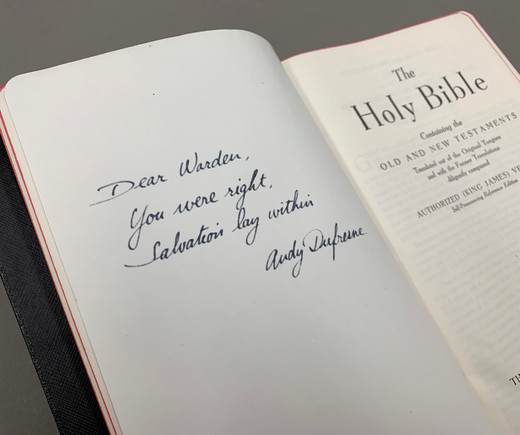 Dear Warden,
You were right,
Salvation lay within
Andy Dufresne
The
Holy Bible
Containing the
OLD AND NEW TESTAMENTS
Translated out of the Original Tongues
and with the Former Translations
diligently compared
AUTHORIZED (KING JAMES) VE
Self-Pronouncing Reference Edition
TI